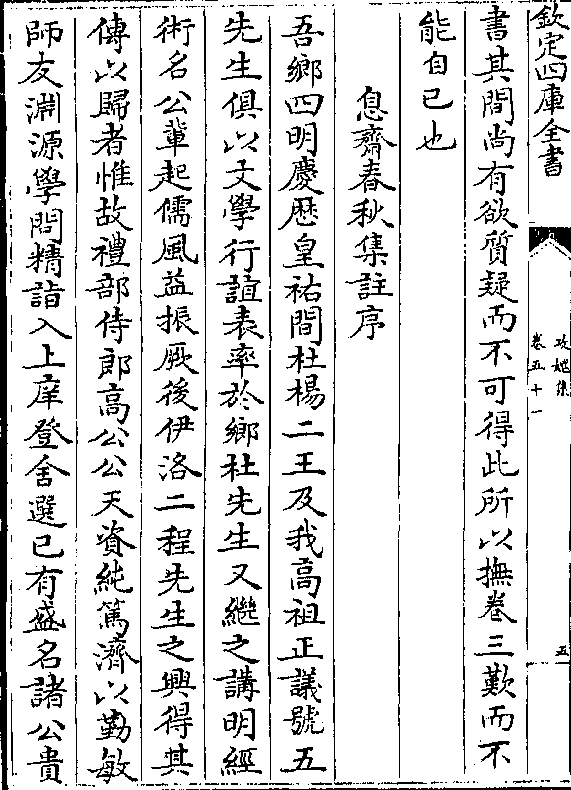 欽定四庫全書
攻媿集
卷五十一
五
書其間尚有欲質疑而不可得此所以撫卷三歎而不
能自已也
息齋春秋集註序
吾鄉四明慶歴皇祐間杜楊二王及我高祖正議號五
先生俱以文學行誼表率於鄉杜先生又繼之講明經
術名公輩起儒風益振厥後伊洛二程先生之興得其
傳以歸者惟故禮部侍郎高公公天資純篤濟以勤敏
師友淵源學問精詣入上庠登舍選已有盛名諸公貴